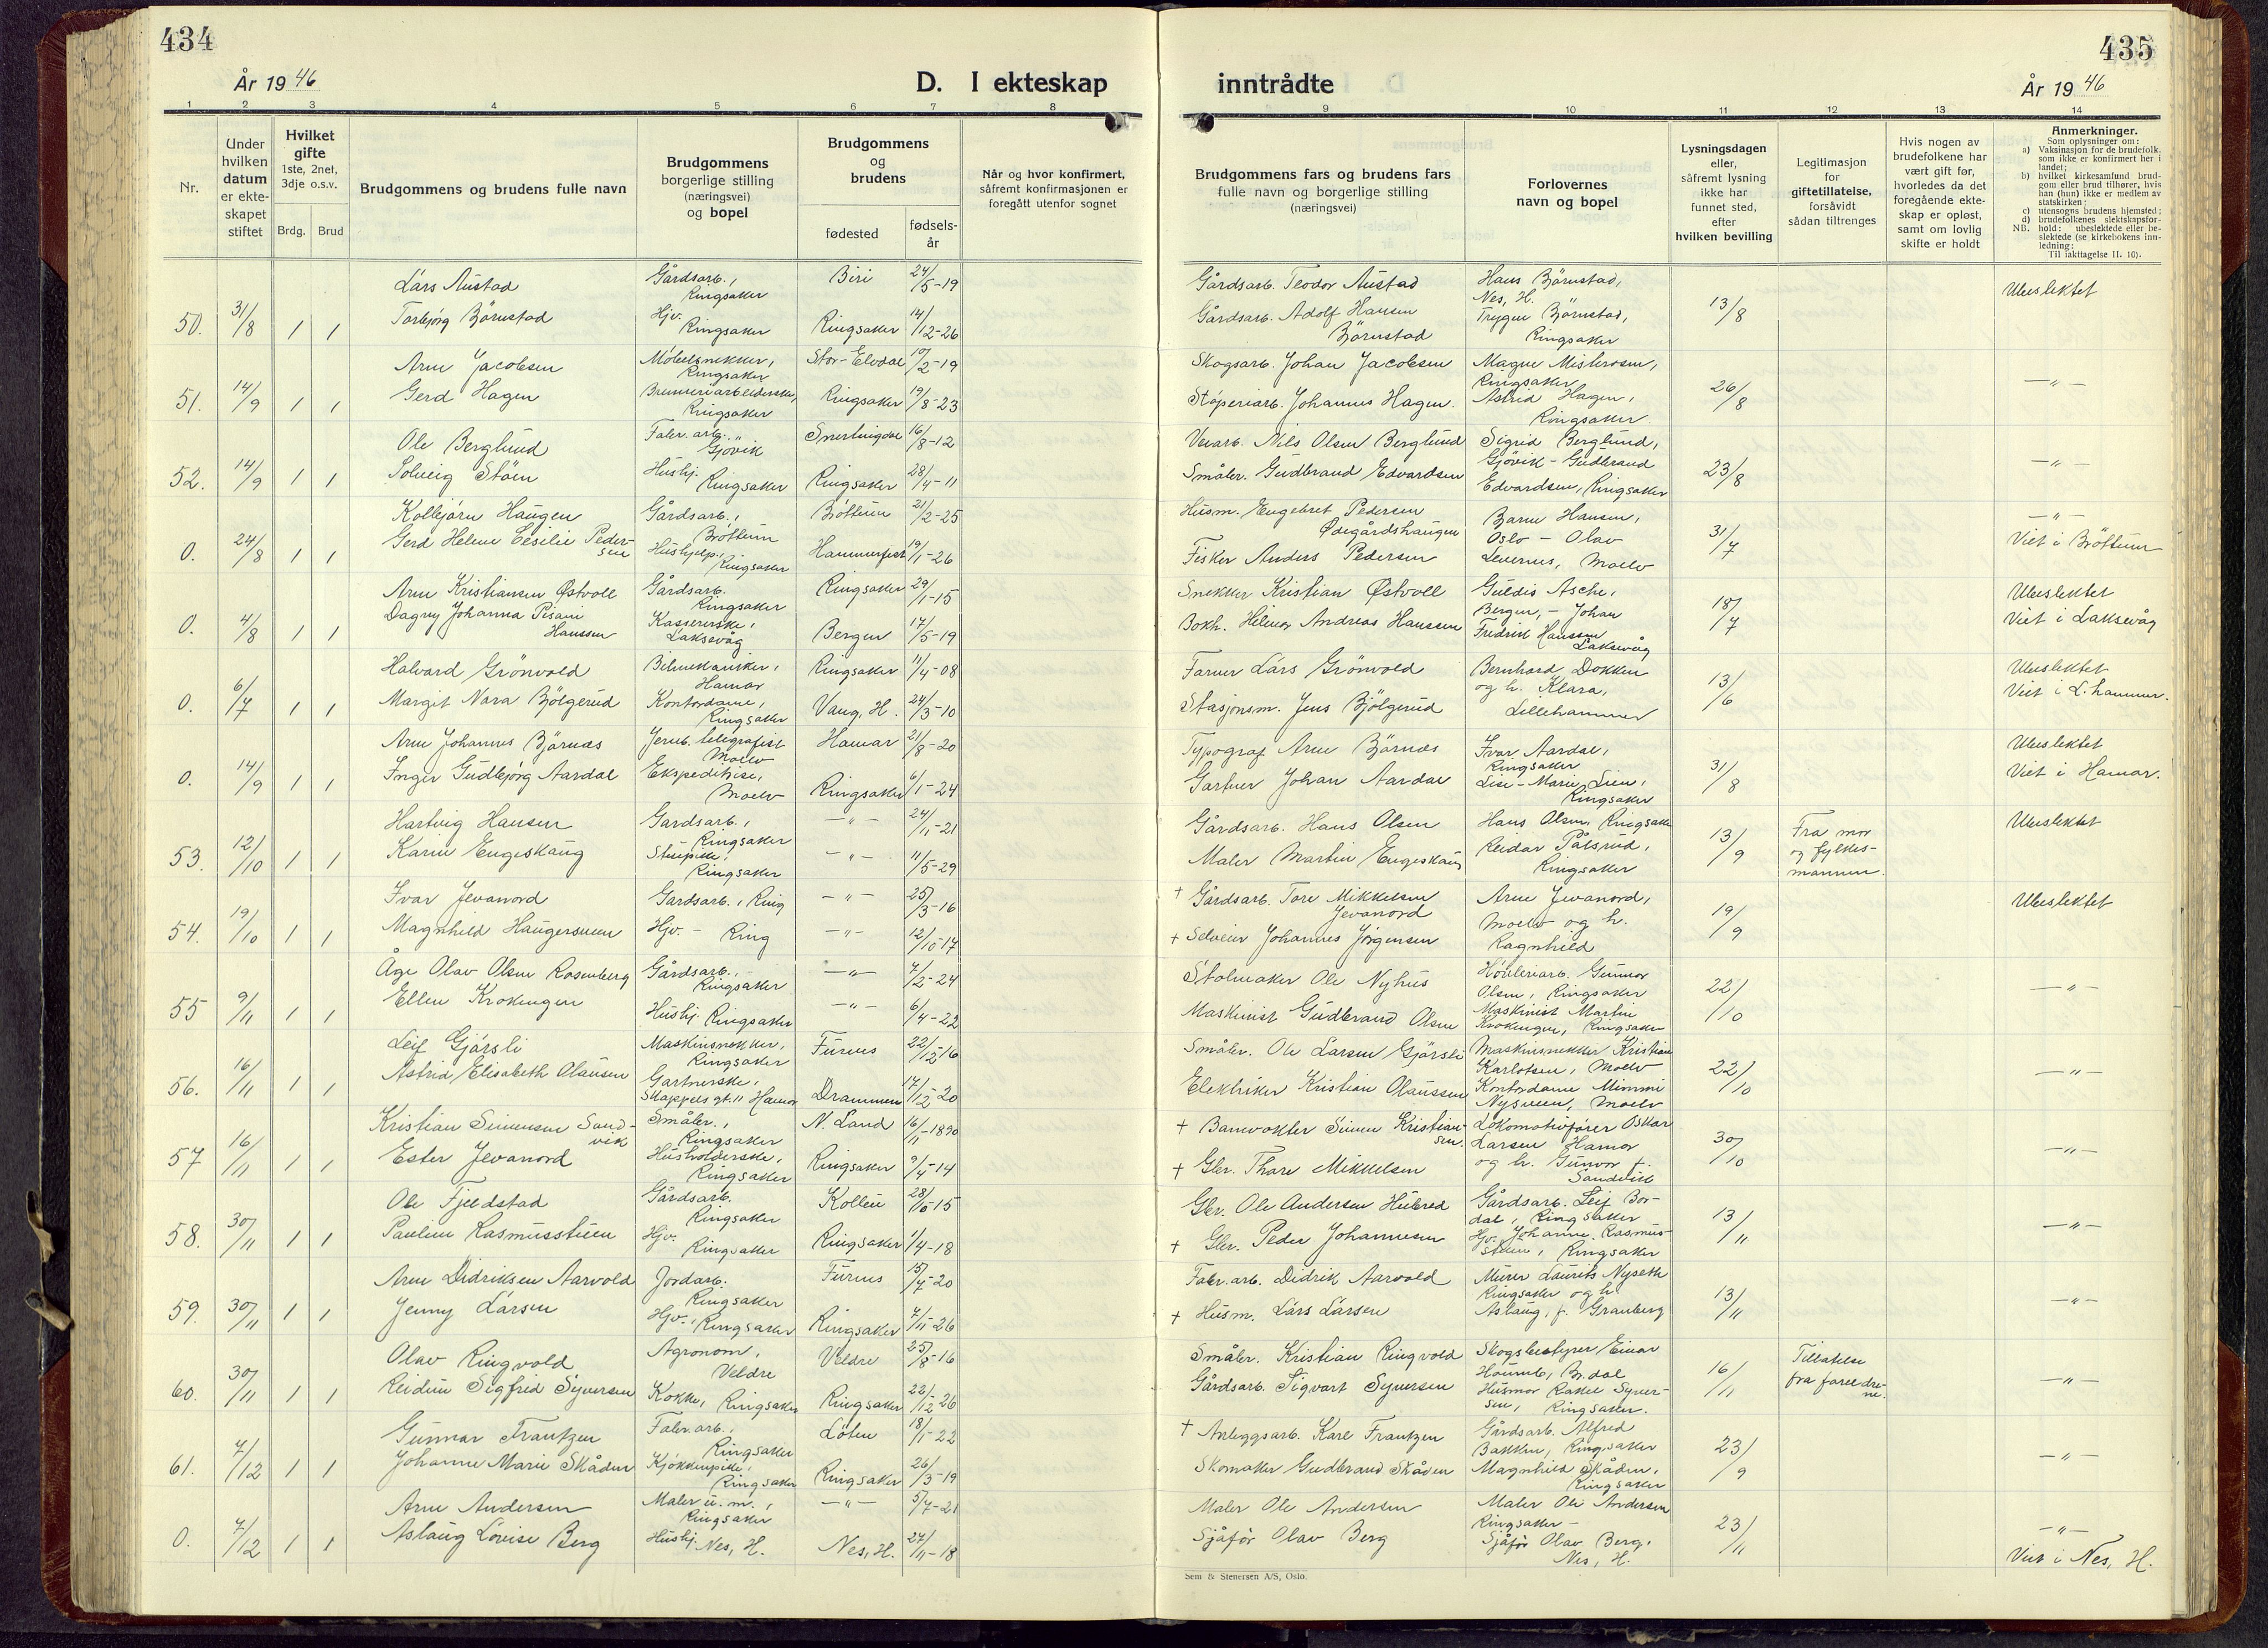 434
År 1946
D. I ekteskap
1 2 3 4 5 6 7 8
Nr.
Under hvilken datum er ekte-skapet stiftet
Hvilket gifte
1ste, 2net, 3dje o.s.v.
Brdg. Brud
Brudgommens og brudens fulle navn
Brudgommens borgerlige stilling (næringsvei) og bopel
Brudgommens og brudens
fødested
fødsels-år
Når og hvor konfirmert, såfremt konfirmasjonen er foregått utenfor sognet
435
inntrådte
År 1946
9 10 11 12 13 14
Brudgommens fars og brudens fars fulle navn og borgerlige stilling (næringsvei)
Forlovernes navn og bopel
Lysningsdagen eller, såfremt lysning ikke har funnet sted, efter hvilken bevilling
Legitimasjon for giftetillatelse, forsåvidt sådan tiltrenges
Hvis nogen av brudefolkene har vært gift før, hvorledes da det foregående ekte-skap er opløst, samt om lovlig skifte er holdt
Anmerkninger.
Som oplysninger om:
a) Vaksinasjon for de brudefolk, som ikke er konfirmert her i landet;
b) hvilket kirkesamfund brud-gom eller brud tilhører, hvis han (hun) ikke er medlem av statskirken;
c) utensogns brudens hjemsted;
d) brudefolkenes slektskapsfor-hold: ubeslektede eller be-slektede (se kirkebokens inn-ledning:
NB.
Til iakttagelse II. 10).
Lars Austad Gårdsarb., Ringsaker Biri 24/5-19 Gårdsarb. Teodor Austad Hans Bjørnstad, Nes, H. Ubeslektet
50. 31/8 1 1 Torbjørg Bjørnstad Hjv. Ringsaker Ringsaker 14/12-26 Gårdsarb. Adolf Hansen Bjørnstad Trygve Bjørnstad, Ringsaker 13/8
Arne Jacobsen Møbelsnekker, Ringsaker Stor-Elvdal 10/2-19 Skogsarb. Johan Jacobsen Magne Ringsaker -"-
51. 14/9 1 1 Gerd Hagen Ringsaker Ringsaker 19/8-23 Støperiarb. Johannes Hagen. Astrid Hagen, Ringsaker 26/8
Ole Berglund Fabr. arb., Gjøvik Snertingdal 16/8-12 Nils Olsen Berglund Sigrid Berglund, Gjøvik - -"-
52. 14/9 1 1 Solveig Støen Hushj. Ringsaker Ringsaker 28/4-11 Småbr. Gudbrand Edvardsen Gudbrand Edvardsen, Ringsaker 23/8
Kolbjørn Haugen Gårdsarb., Brøttum Brøttum 21/2-25 Husm. Engebret Pedersen Ødegårdshaugen Hansen, Oslo - -"-
0. 24/8 1 1 Gerd Helene Cesilie Pedersen Hushjelp, Ringsaker Hammerfest 19/1-26 Fisker Anders Pedersen Olav Moelv 31/7 Viet i Brøttum
Arne Kristiansen Østvoll Gårdsarb. Ringsaker Ringsaker 29/1-15 Snekker Kristian Østvoll Guldis Asche, Bergen, - Ubeslektet
0. 4/8 1 1 Dagny Johanna Pisani Hanssen Kassererske, Laksevåg Bergen 17/5-19 Bokh. Hilmar Andreas Hanssen Johan Fredrik Hanssen Laksevåg 18/7 Viet i Laksevåg
Halvard Grønvold Bilmekaniker, Hamar Ringsaker 11/4-08 Farmer Lars Grønvold Bernhard Dokken Ubeslektet
0. 6/7 1 1 Margit Nara Bjølgerud Kontordame, Ringsaker Vang, H. 24/3-10 Stasjonsm. Jens Bjølgerud og h. Klara, Lillehammer 13/6 Viet i L.hammer.
Arne Johannes Bjørnås Jernb. telegrafist Moelv Hamar 21/8-20 Typograf Arne Bjørnås Ivar Aardal, Ringsaker Ubeslektet
0. 14/9 1 1 Inger Gudbjørg Aardal Ekspeditrise, Moelv Ringsaker 6/1-24 Gartner Johan Aardal Lise-Marie Lien, Ringsaker 31/8 Viet i Hamar.
Hartvig Hansen Gardsarb., Ringsaker -"- 24/11-21 Gårdsarb. Hans Olsen Hans Olsen, Ringsaker Fra mor og fylkes-mannen. Ubeslektet
53. 12/10 1 1 Karin Engeskaug Stuepike, Ringsaker -"- 11/5-29 Maler Martin Engeskaug Reidar Pålsrud, Ringsaker 13/9
Ivar Jevanord Gardsarb., Ring -"- 25/3-16 + Gårdsarb. Tore Mikkelsen Jevanord Arne Jevanord, Moelv Ubeslektet
54. 19/10 1 1 Magnhild Haugersveen Hjv. - Ring -"- 12/10-17 + Selveier Johannes Jørgensen og h. Ragnhild 19/9
Åge Olav Olsen Rosenberg Gårdsarb., Ringsaker -"- 7/2-24 Stolmaker Ole Nyhus Høvleriarb. Gunnar Olsen, Ringsaker -"-
55 9/11 1 1 Ellen Krokengen Hushj. Ringsaker -"- 6/4-22 Maskinist Gudbrand Olsen Maskinist Martin Krokengen, Ringsaker 22/10
Leif Gjørsli Maskinsnekker, Ringsaker Furnes 22/12-16 Småbr. Ole Larsen Gjørsli Maskinsnekker Kristian Karlotsen, Moelv -"-
56. 16/11 1 1 Astrid Elisabeth Olaussen Gartnerske, Skappels gt. 11 Hamar Drammen 17/12-20 Elektriker Kristian Olaussen Kontordame Mimmi Nysveen, Moelv 22/10
Kristian Simensen Sandvik Småbr., Ringsaker N. Land 16/11-1890 + Banevokter Simen Kristiansen. Lokomotivfører Oskar Larsen Hamar -"-
57 16/11 1 1 Ester Jevanord Husholderske, Ringsaker Ringsaker 9/4-14 + Gbr. Thore Mikkelsen og h. Gunvor f. Sandvik 30/10
Ole Fjeldstad Gårdsarb. Ringsaker Kolbu 28/6-15 Gbr. Ole Andersen Hubred Gårdsarb. Leif Bordal, Ringsaker -"-
58. 30/11 1 1 Pauline Rasmusstuen Hjv. Ringsaker Ringsaker 1/4-18 + Gbr. Peder Johannesen Hjv. Johanne Rasmusstuen, Ringsaker 13/11
Arne Didriksen Aarvold Jordarb. Ringsaker Furnes 15/7-20 Fabr.arb. Didrik Aarvold Murer Laurits Nyseth Ringsaker -"-
59. 30/11 1 1 Jenny Larsen Hjv., Ringsaker Ringsaker 7/11-26 + Husm. Lars Larsen og h. Aslaug, f. Granberg 13/11
Olav Ringvold Agronom, Veldre Veldre 25/8-16 Småbr. Kristian Ringvold Skogsbestyrer Einar Br.dal Tillatelse fra foreldrene. -"-
60. 30/11 1 1 Reidun Sigfrid Syversen Kokke, Ringsaker Ringsaker 22/12-26 Gårdsarb. Sigvart Syversen Husmor Rakel Syversen, Ringsaker. 16/11
Gunnar Frantzen Fabr.arb., Ringsaker Løten 18/1-22 + Anleggsarb. Karl Frantzen Gårdsarb. Alfred Bakken, Ringsaker -"-
61. 7/12 1 1 Johanne Marie Skåden Kjøkkenpike, Ringsaker Ringsaker 26/3-19 Skomaker Gudbrand Skåden Magnhild Skåden, Ringsaker 23/9
Arne Andersen Maler u.m., Ringsaker -"- 5/7-21 Maler Ole Andersen Maler Ole Andersen Ringsaker - -"-
0. 7/12 1 1 Aslaug Lovise Berg Hushj. Nes, H. Nes, H. 27/11-18 Sjåfør Olav Berg Sjåfør Olav Berg, Nes, H. 23/11 Viet i Nes, H.
Sem & Stenersen A/S, Oslo.